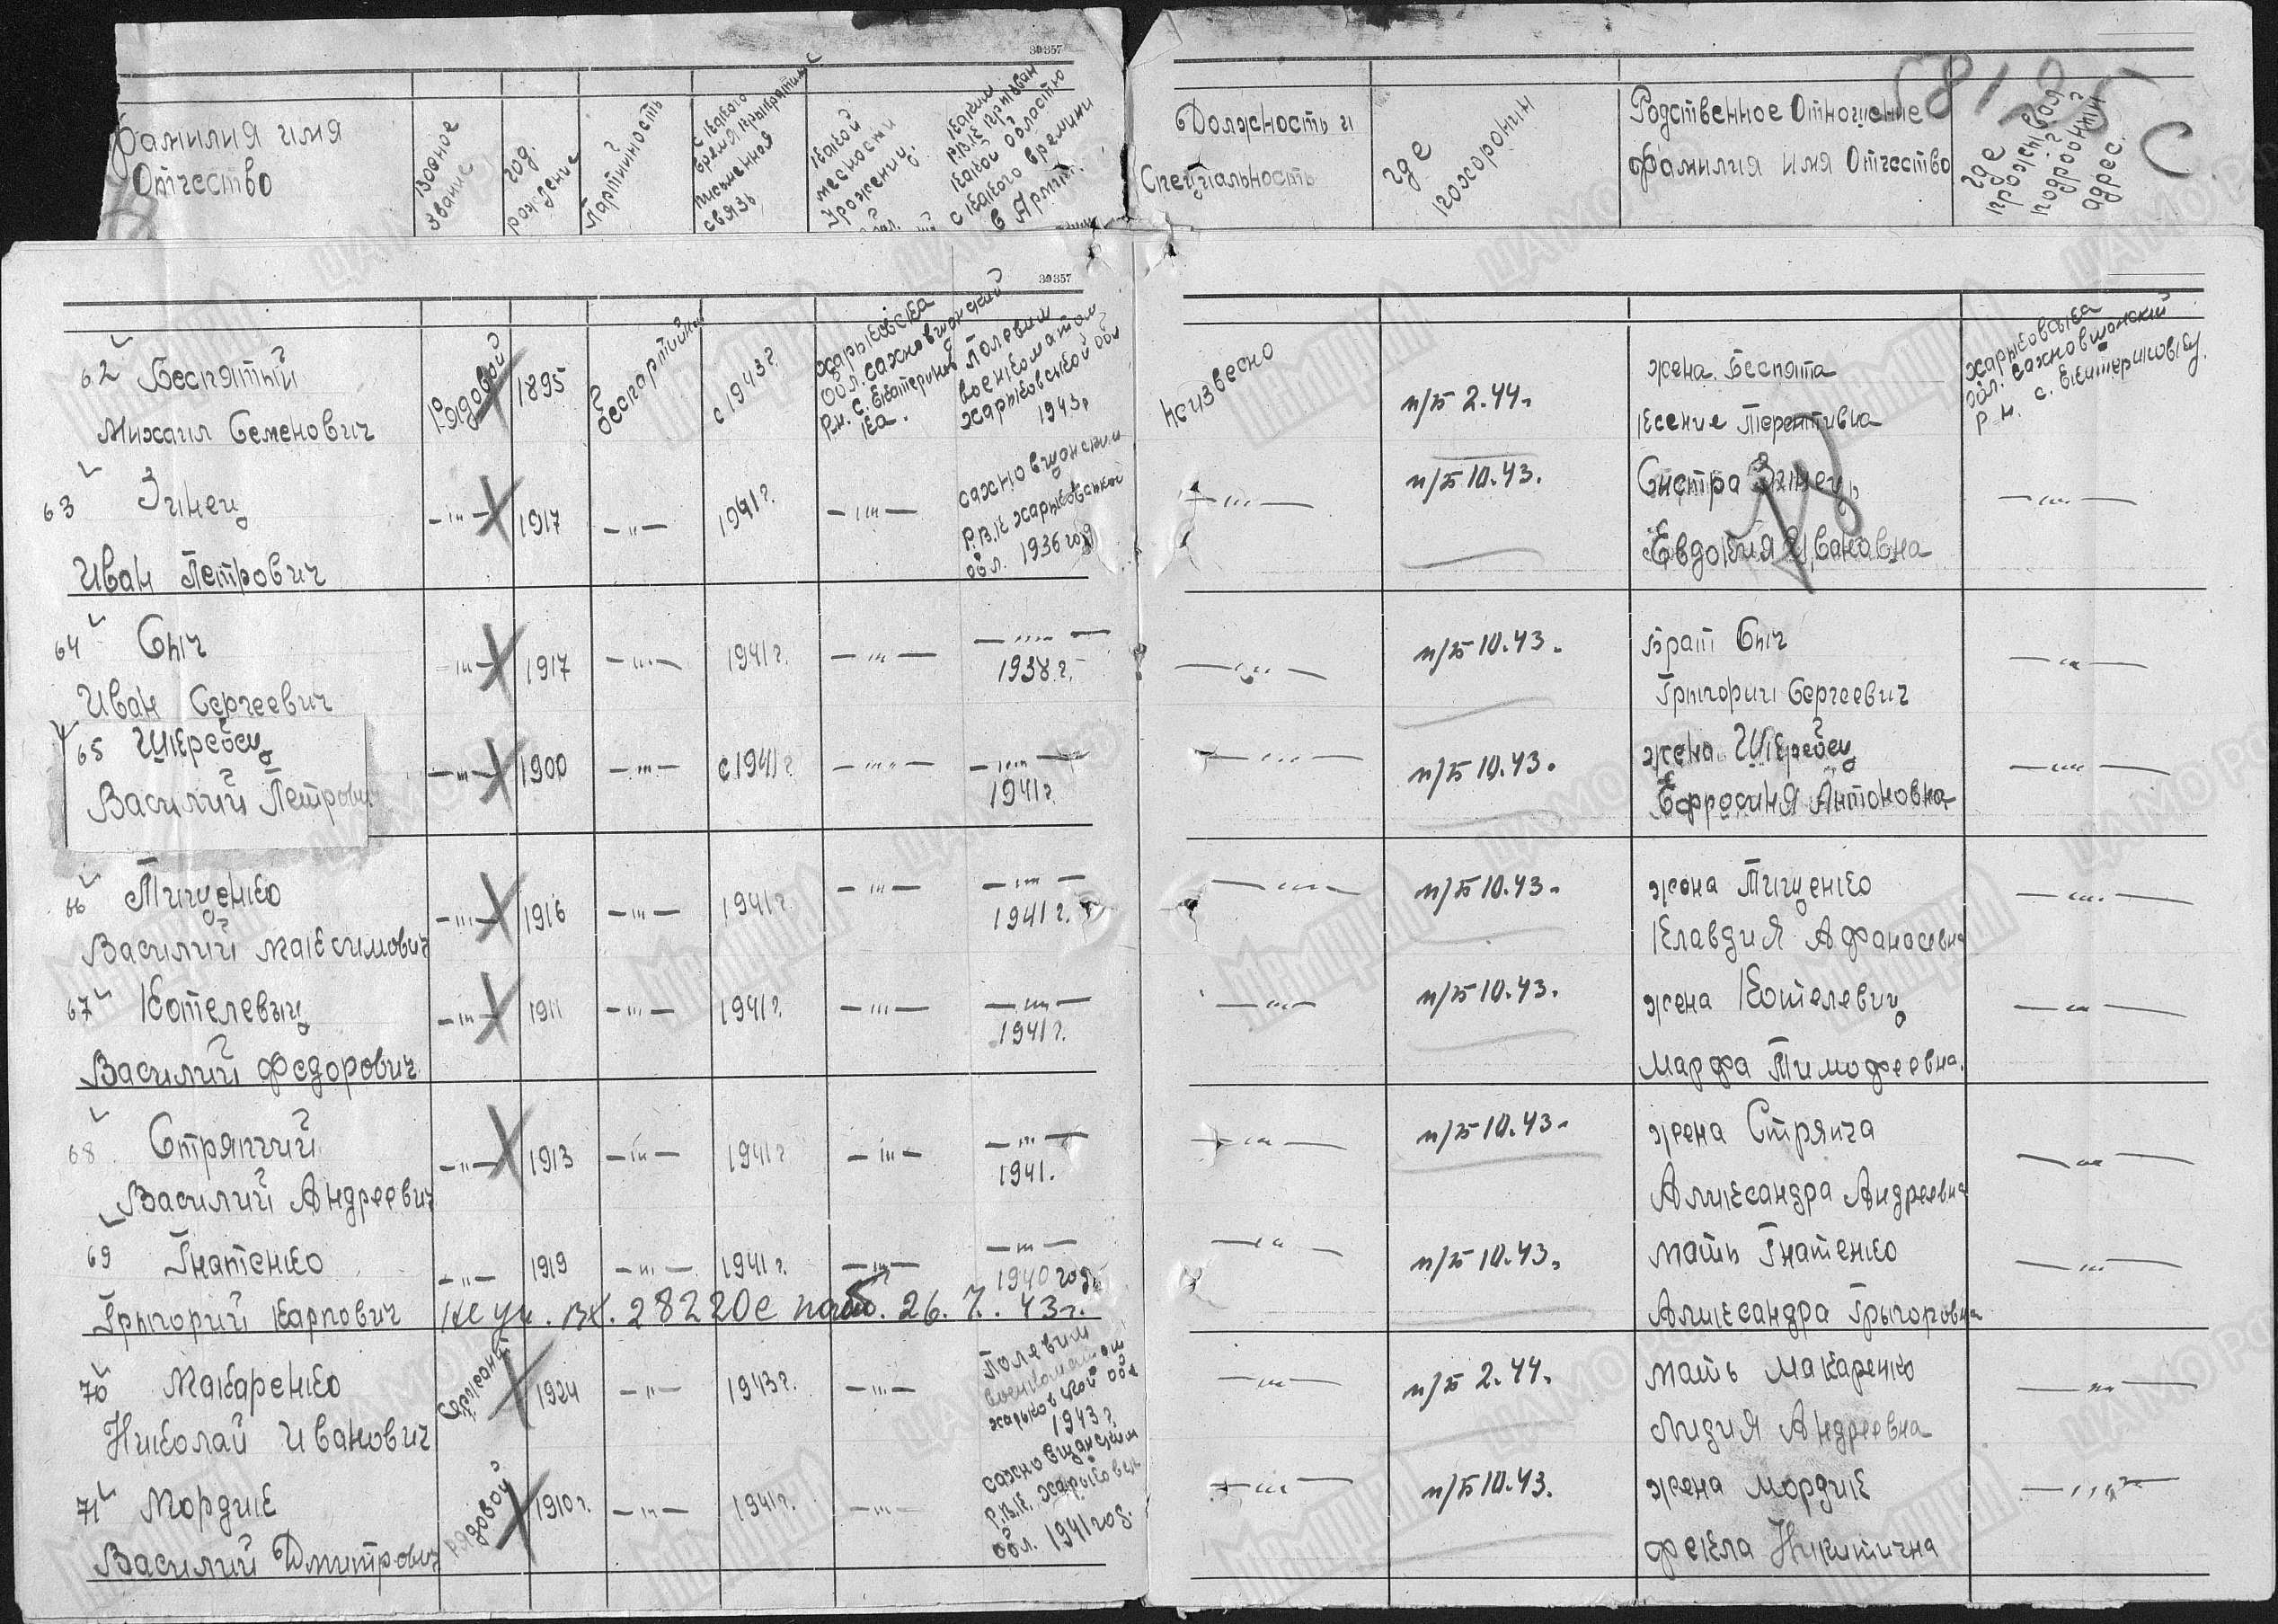 30357
Фамилия имя
Отчество
Воіное
звание
год.
рождение
Партийность
с какого
время прыкратилис
письменная
связь
какой
месности
Урожениц.
каким
Р.В.К прызван
какой область
с какого времини
в Армии.
Должность и
Специальность
где
похоронин
Родственное Отношение
Фамилия имя Отчество
где
прожывал
подробный
адрес.
С
30357
62 Беспятый
Михаил Семенович
Рядовой
1895
беспартийный
с 1943г.
Харьковска
обл. Сахновщанский
р.н. с. Екатеринов
ка.
Полевым
военкоматом
Харьковской обл
1943г
неизвесно
п/б 2.44.
жена. Беспята
Ксение Терентивна
Харьковська
обл. Сахновщанский
р.н. с. Екитериновку.
63 Зинец
Иван Петрович
— „ —
1917
— „ —
1941г.
— „ —
Сахновщанским
Р.В.К Харьковськой
обл. 1936 год
— „ —
п/б 10.43.
Систра Зинец
Евдокия Ивановна
— „ —
64 Сыч
Иван Сергеевич
— „ —
1917
— „ —
1941г.
— „ —
— „ —
1938г.
— „ —
п/б 10.43.
Брат Сыч
Грыгорий Сергеевич
— „ —
65 Шкребец
Василий Петрович
— „ —
1900
— „ —
с 1941г
— „ —
— „ —
1941г
— „ —
п/б 10.43.
жена Шкребец
Ефросиня Антоновна
— „ —
66 Тищенко
Василий Максимович
— „ —
1916
— „ —
1941г.
— „ —
— „ —
1941г.
— „ —
п/б 10.43.
жена Тищенко
Клавдия Афанасевна
— „ —
67 Котелевиц
Василий Федорович
— „ —
1911
— „ —
1941г.
— „ —
— „ —
1941г.
— „ —
п/б 10.43.
жена Котелевиц
Марфа Тимофеевна.
— „ —
68 Стряпчий
Василий Андреевич
— „ —
1913
— „ —
1941г
— „ —
— „ —
1941.
— „ —
п/б 10.43.
жена Стряпча
Алиександра Андреевна
— „ —
69 Гнатенко
Грыгорий Карпович
— „ —
1919
— „ —
1941г.
— „ —
— „ —
1940 год
— „ —
п/б 10.43.
мать Гнатенко
Алиександра Грыгоровна
— „ —
вх. 28220с 26. 7. 43г.
70 Макаренко
Николай Иванович
Сержант
1924
— „ —
1943г.
— „ —
Полевим
военкоматом
Харьковской обл
1943г
— „ —
п/б 2.44.
мать Макаренко
Лидия Андреевна
— „ —
71 Мордик
Василий Дмитрович
рядовой
1910г.
— „ —
1941г.
— „ —
Сахновщанским
Р.В.К. Харьковць
обл. 1941 год.
— „ —
п/б 10.43.
жена Мордик
Фекла Никитична
— „ —